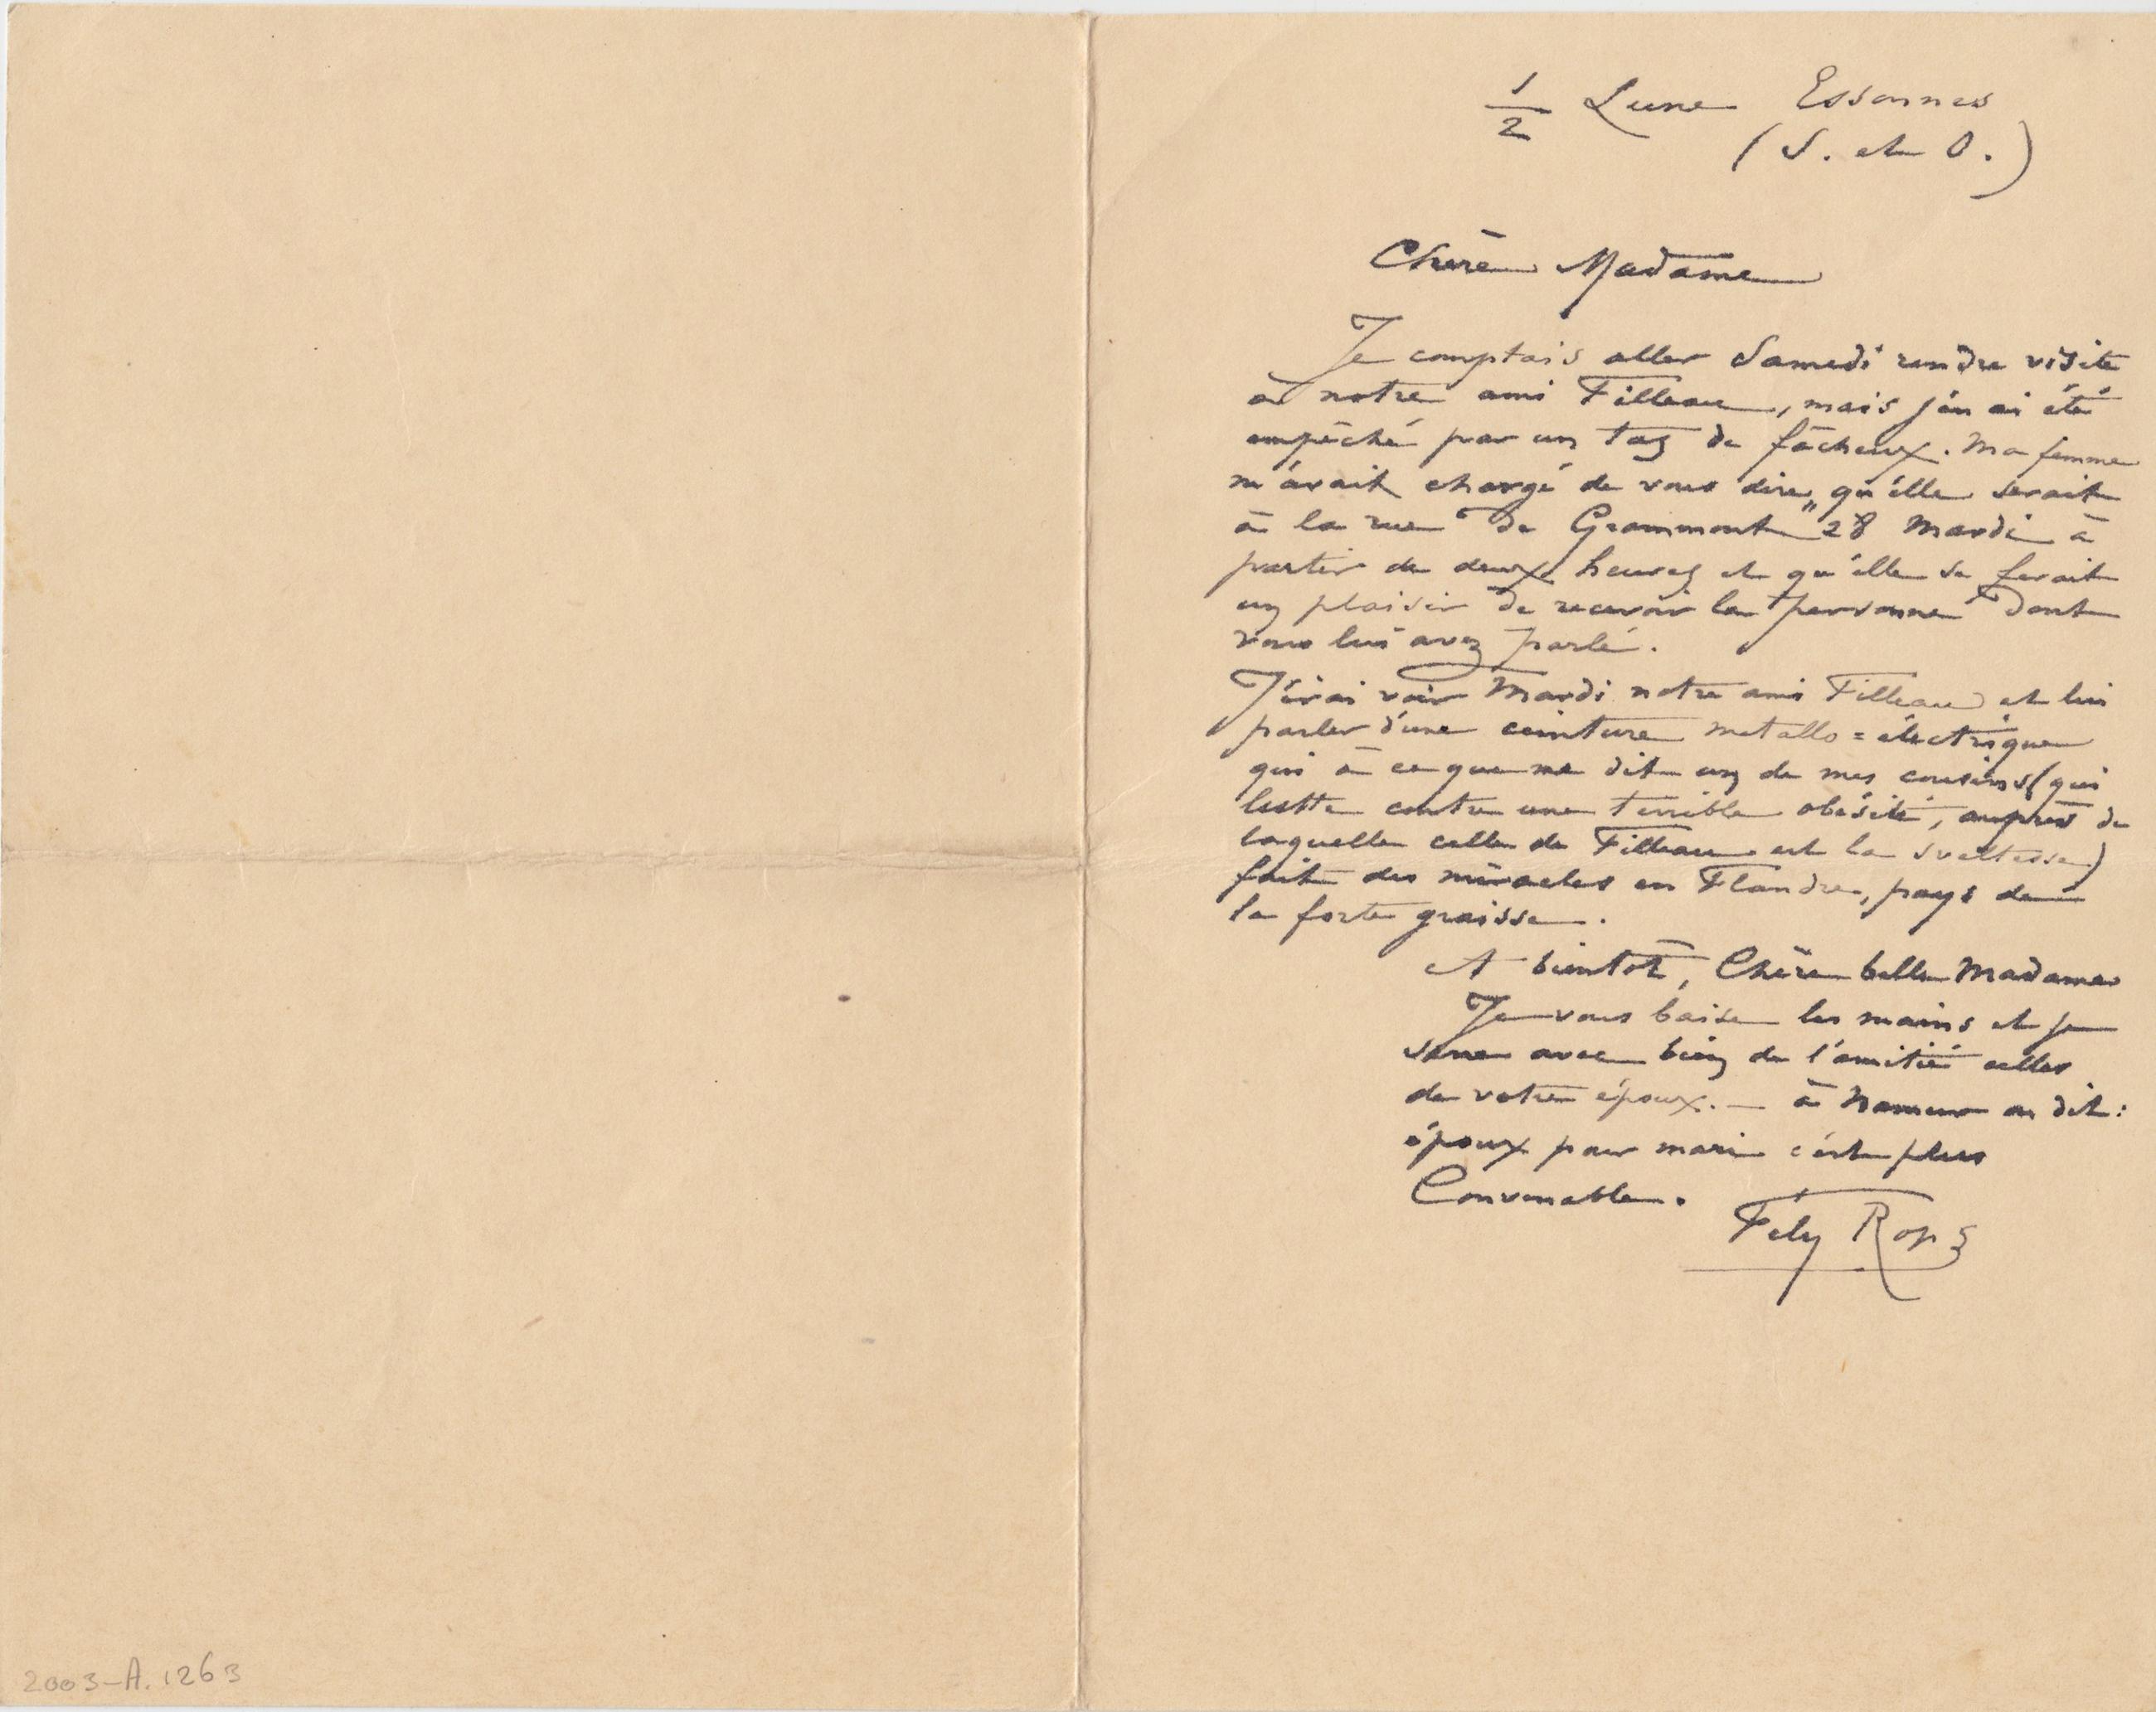 ½ Lune Essonnes
(S. et O.)
Chère Madame
Je comptais aller Samedi rendre visite
à notre ami Filleau, mais j'en ai été
empêché par un tas de fâcheux. Ma femme
m'avait chargé de vous dire, qu'elle serait
à la rue "de Grammont" 28 Mardi à
partir de deux heures et qu'elle se ferait
un plaisir de recevoir la personne dont
vous lui avez parlé.
J'irai voir Mardi notre ami Filleau et lui
parler d'une ceinture metallo=électrique
qui à ce que me dit un de mes cousins (qui
lutte contre une terrible obésité, auprès de
laquelle celle de Filleau est la sveltesse)
fait des miracles en Flandre, pays de
la forte graisse.
A bientôt, Chère belle Madame
Je vous baise les mains et je
serre avec bien de l'amitié celles
de votre époux. — à Namur on dit:
époux pour mari c'est plus
Convenable.
Fély Rops
2003-A.1263